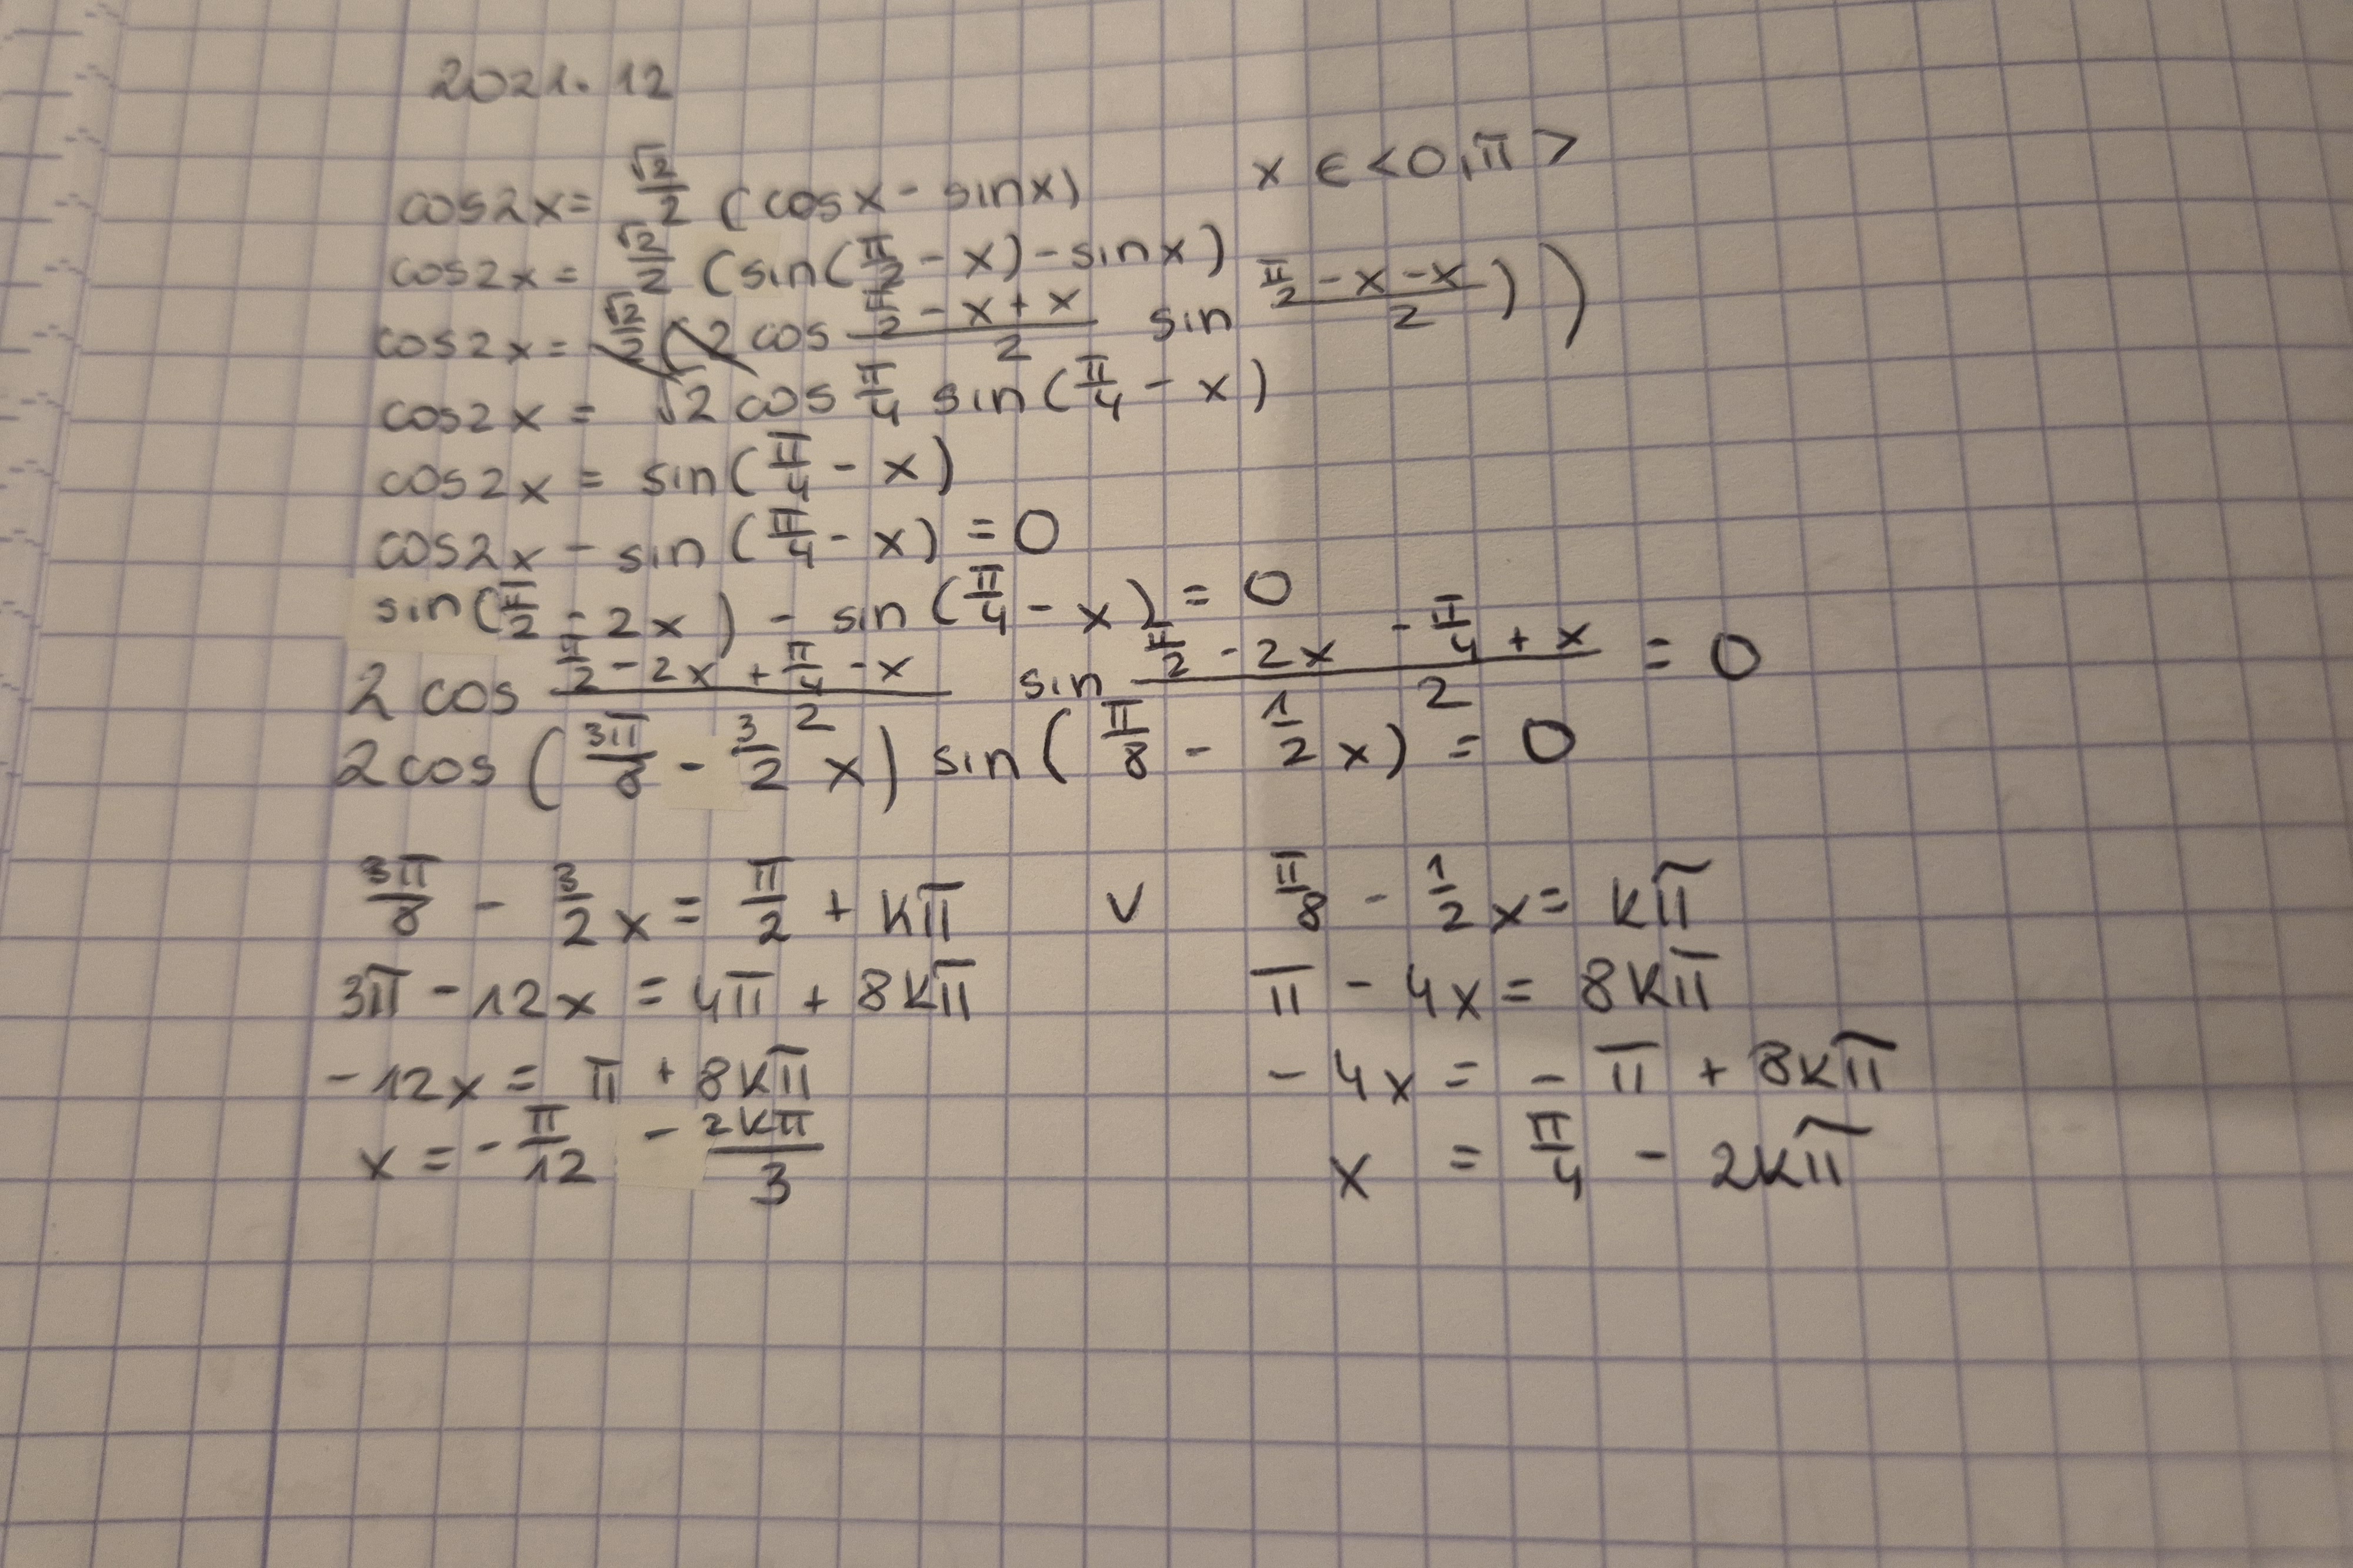 2021.12
cos2x = √2/2 (cosx - sinx) x ∈ <0,π>
cos2x = √2/2 (sin(π/2 - x) - sinx)
cos2x = √2/2 (2 cos (π/2 - x + x)/2 sin (π/2 - x - x)/2))
cos2x = √2 cos π/4 sin(π/4 - x)
cos2x = sin(π/4 - x)
cos2x - sin(π/4 - x) = 0
sin(π/2 - 2x) - sin(π/4 - x) = 0
2 cos (π/2 - 2x + π/4 - x)/2 sin (π/2 - 2x - π/4 + x)/2 = 0
2cos(3π/8 - 3/2 x) sin(π/8 - 1/2 x) = 0
3π/8 - 3/2 x = π/2 + kπ v π/8 - 1/2 x = kπ
3π - 12x = 4π + 8kπ π - 4x = 8kπ
-12x = π + 8kπ - 4x = - π + 8kπ
x = - π/12 - 2kπ/3 x = π/4 - 2kπ